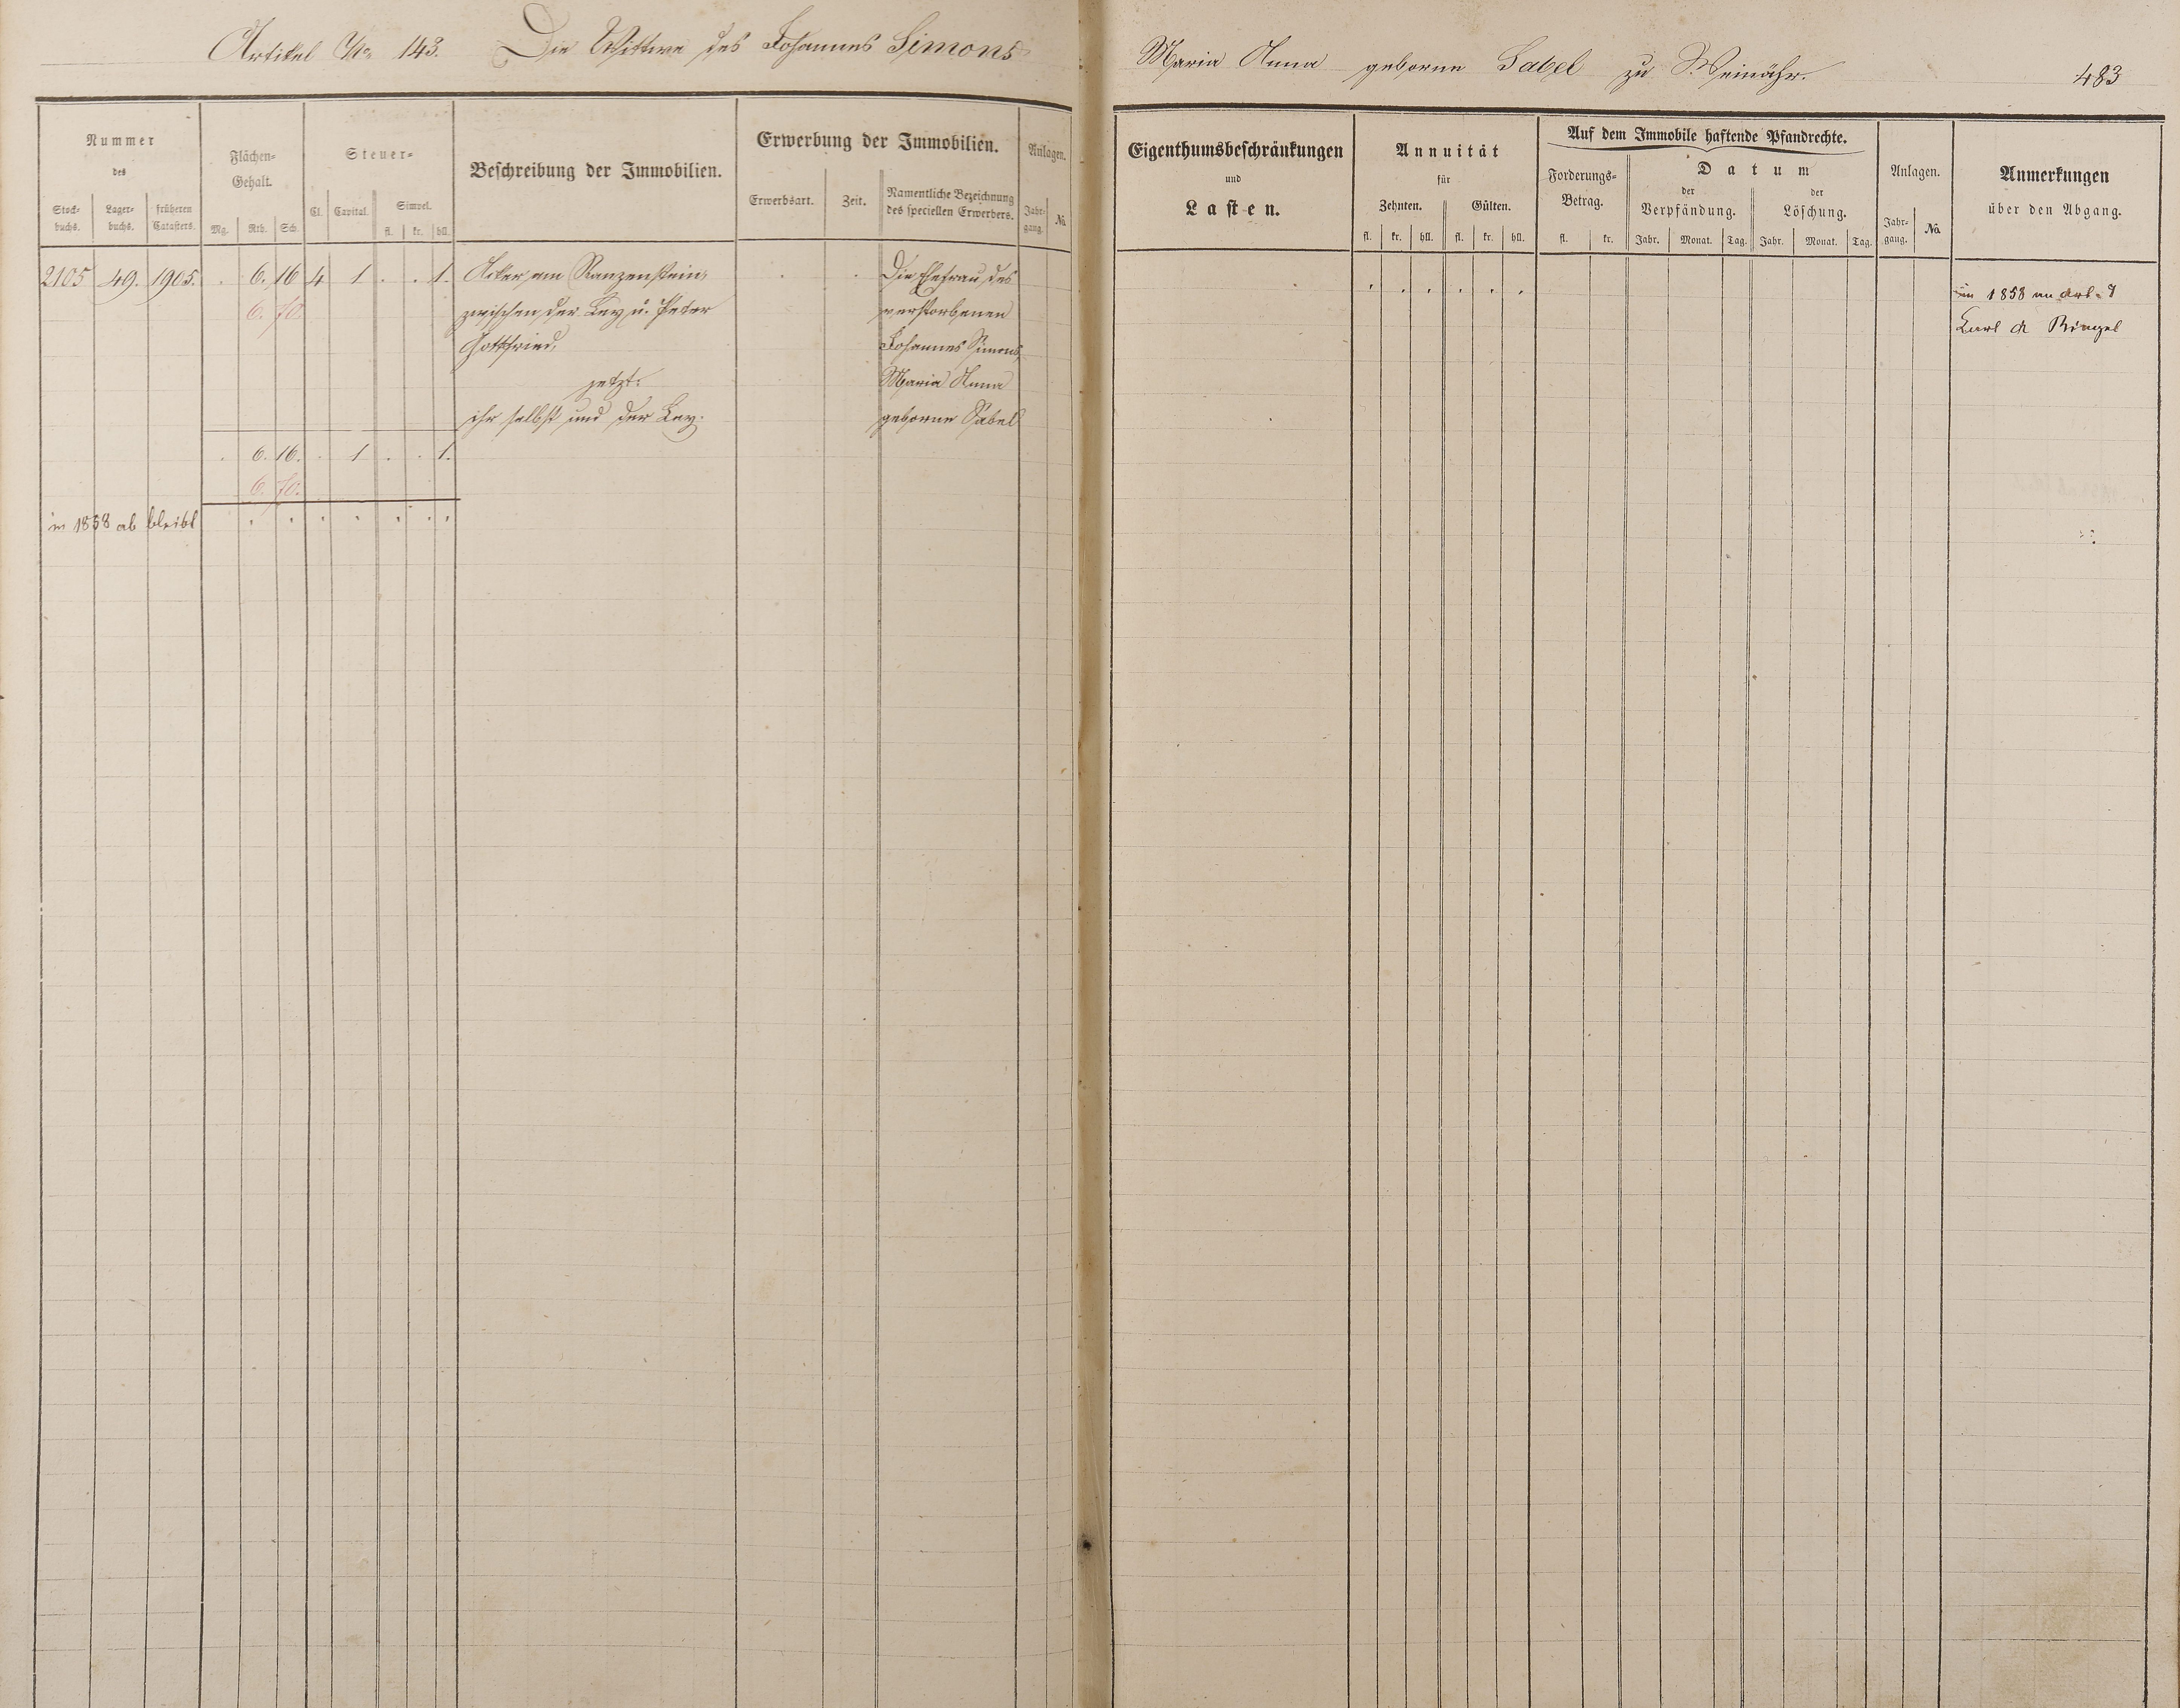 Artikel No 143. Die Wittwe des Johannes Simons
Maria Anna geborne Sabel zu Weinähr. 483
Nummer
des
Stock-
buchs.
Lager-
buchs.
früheren
Catasters.
Flächen-
Gehalt.
Mg. Rth. Sch.
Steuer-
Cl. Capital. Simpel.
fl. kr. hll.
Beschreibung der Immobilien.
Erwerbung der Immobilien.
Erwerbsart. Zeit.
Namentliche Bezeichnung
des speciellen Erwerbers.
Anlagen.
Jahr-
gang. No
Eigenthumsbeschränkungen
und
Lasten.
Annuität
für
Zehnten. Gülten.
fl. kr. hll. fl. kr. hll.
Auf dem Immobile haftende Pfandrechte.
Forderungs-
Betrag.
fl. kr.
Datum
der
Verpfändung.
der
Löschung.
Jahr. Monat. Tag. Jahr. Monat. Tag.
Anlagen.
Jahr-
gang. No
Anmerkungen
über den Abgang.
2105 49. 1905. . 6. 16 4 1 . . 1. Acker am Ranzenstein, . . Die Ehefrau des
6. 70. zwischen der Ley u. Peter verstorbenen
Gottfried, Johannes Simons,
jetzt: Maria Anna
ihr selbst und der Ley. geborne Sabel
. 6. 16. . 1 . . 1.
6. 70.
in 1858 ab bleibt . . . . . . .
in 1858 an Art.
Karl Ringel